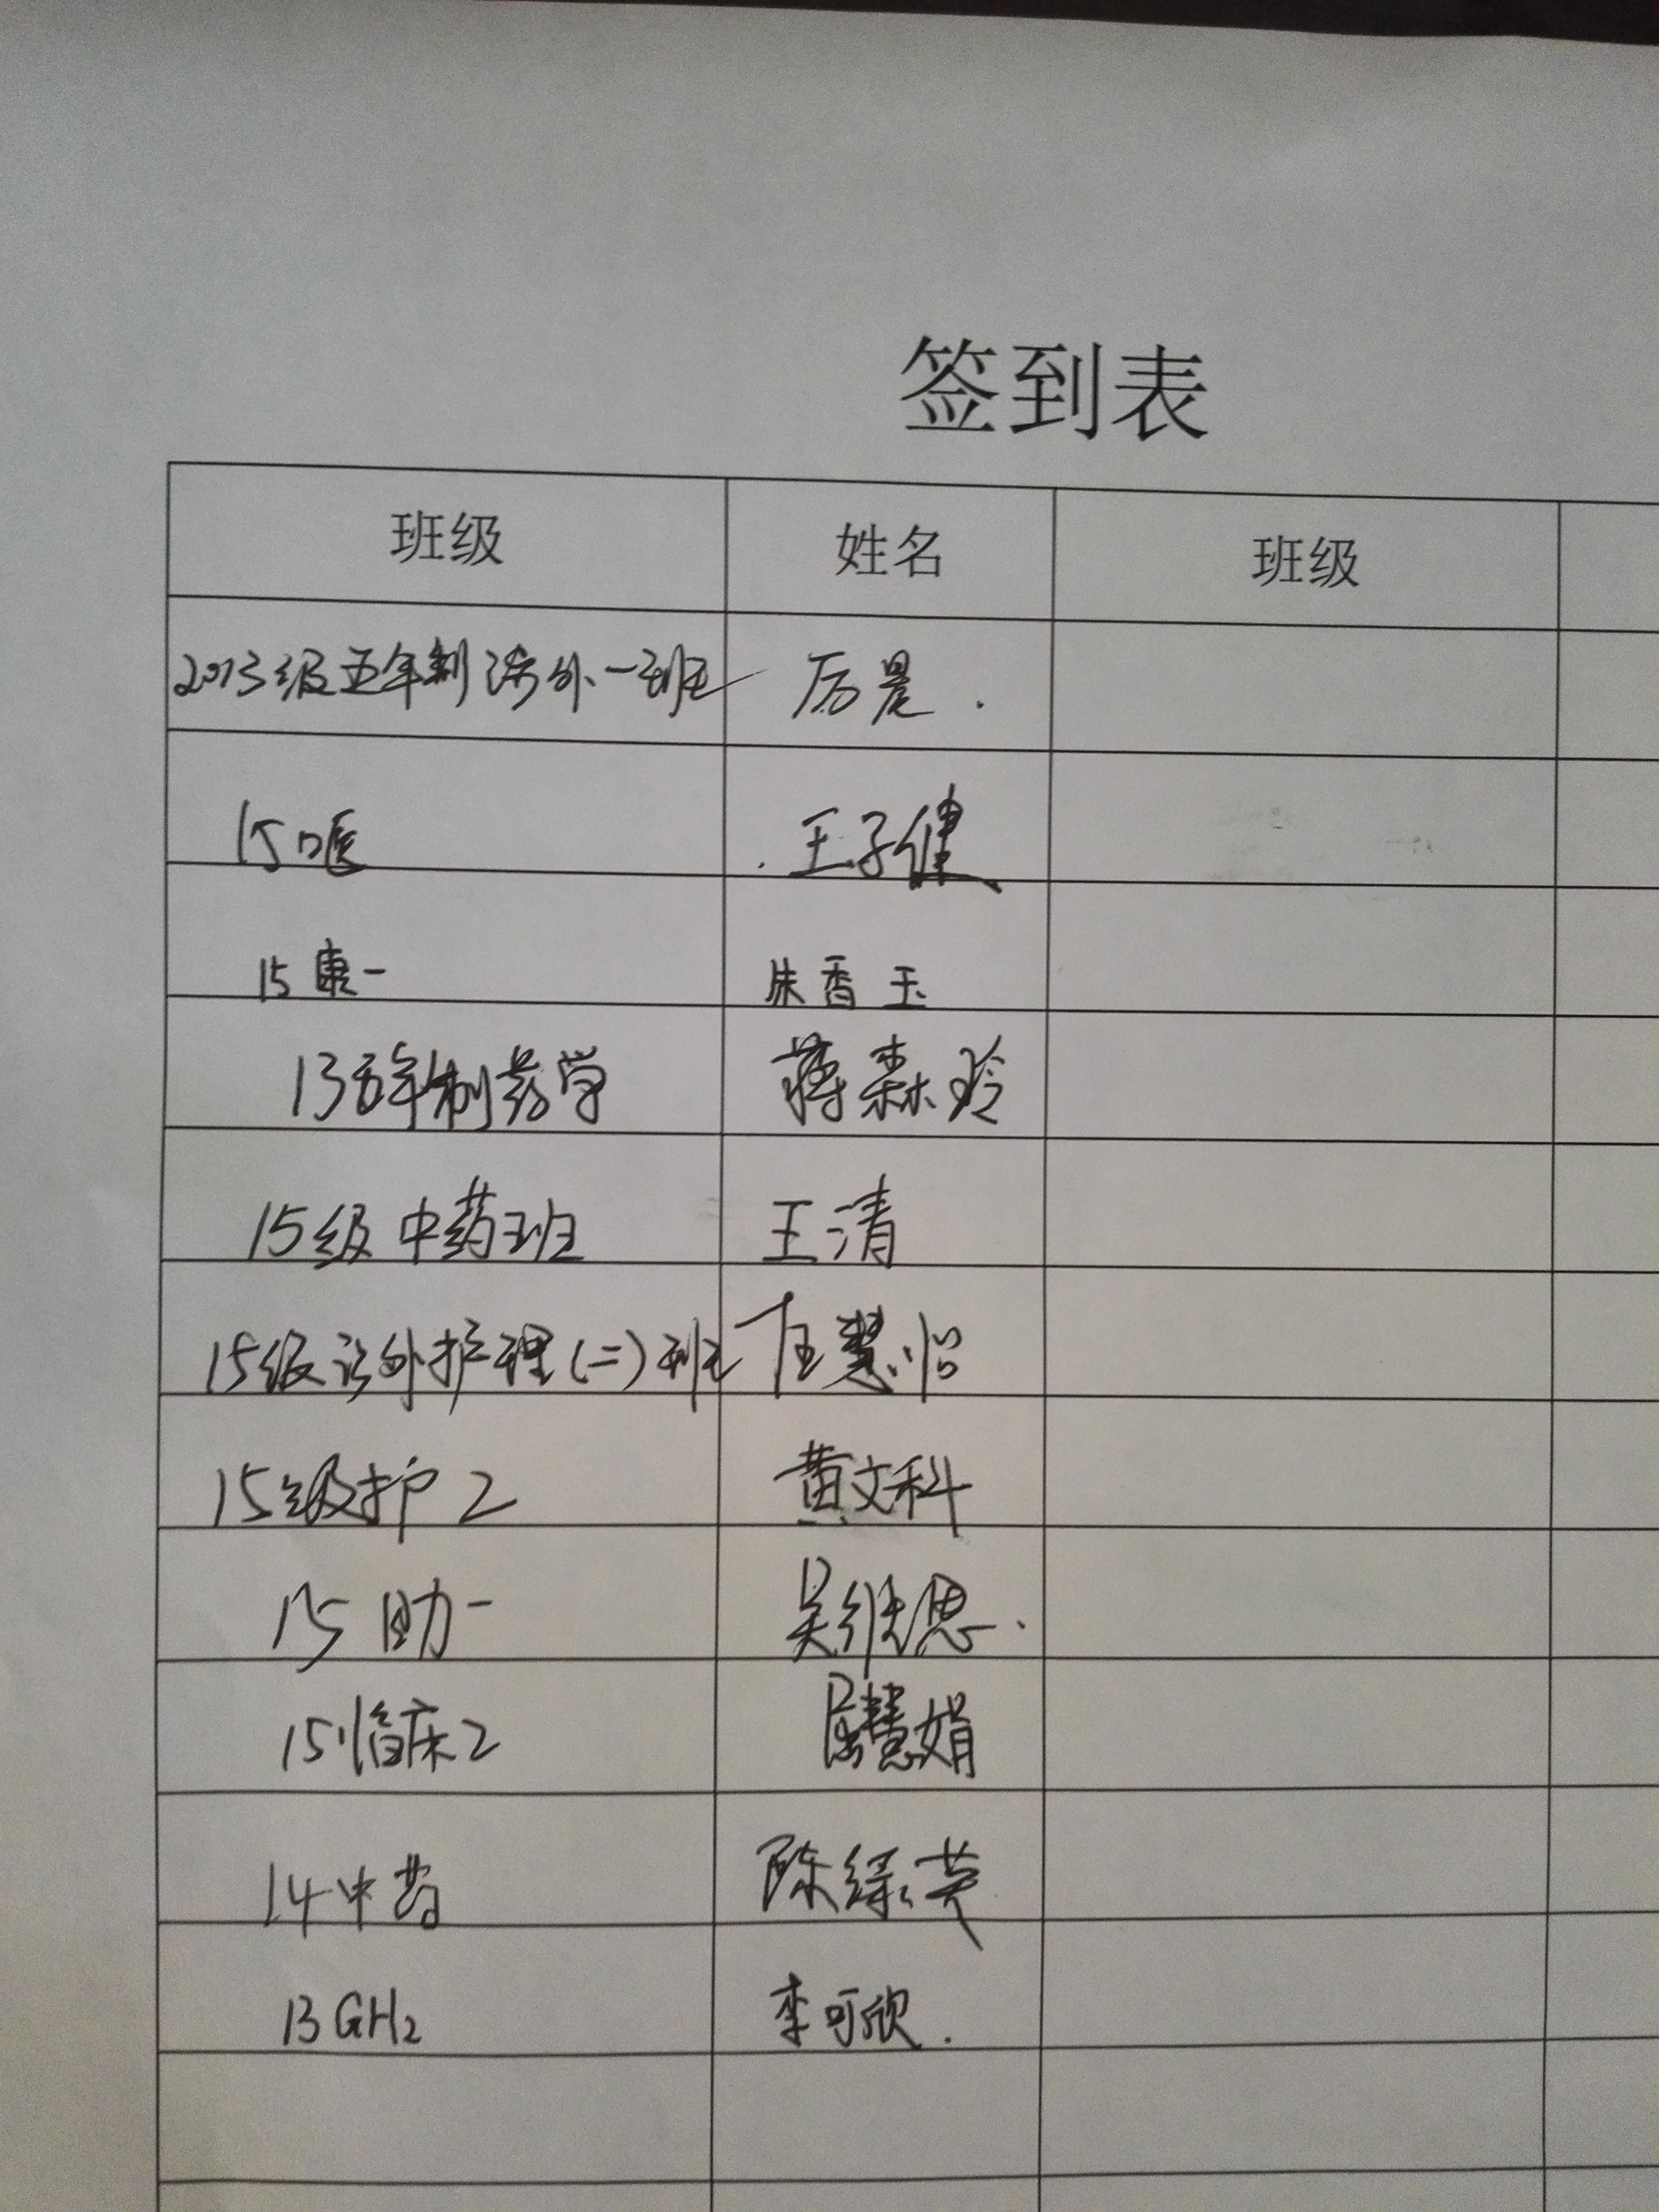 签到表
班级 姓名 班级
2013级五年制涉外一班 厉晨.
15口医 王子健
15康一 朱香玉
13五年制药学 蒋森玲
15级中药班 王清
15级涉外护理(二)班 慧怡
15级护2 黄文科
15助一 吴继恩.
15临床2 慧娟
14中药 陈绿英
13GH2 李可欣.